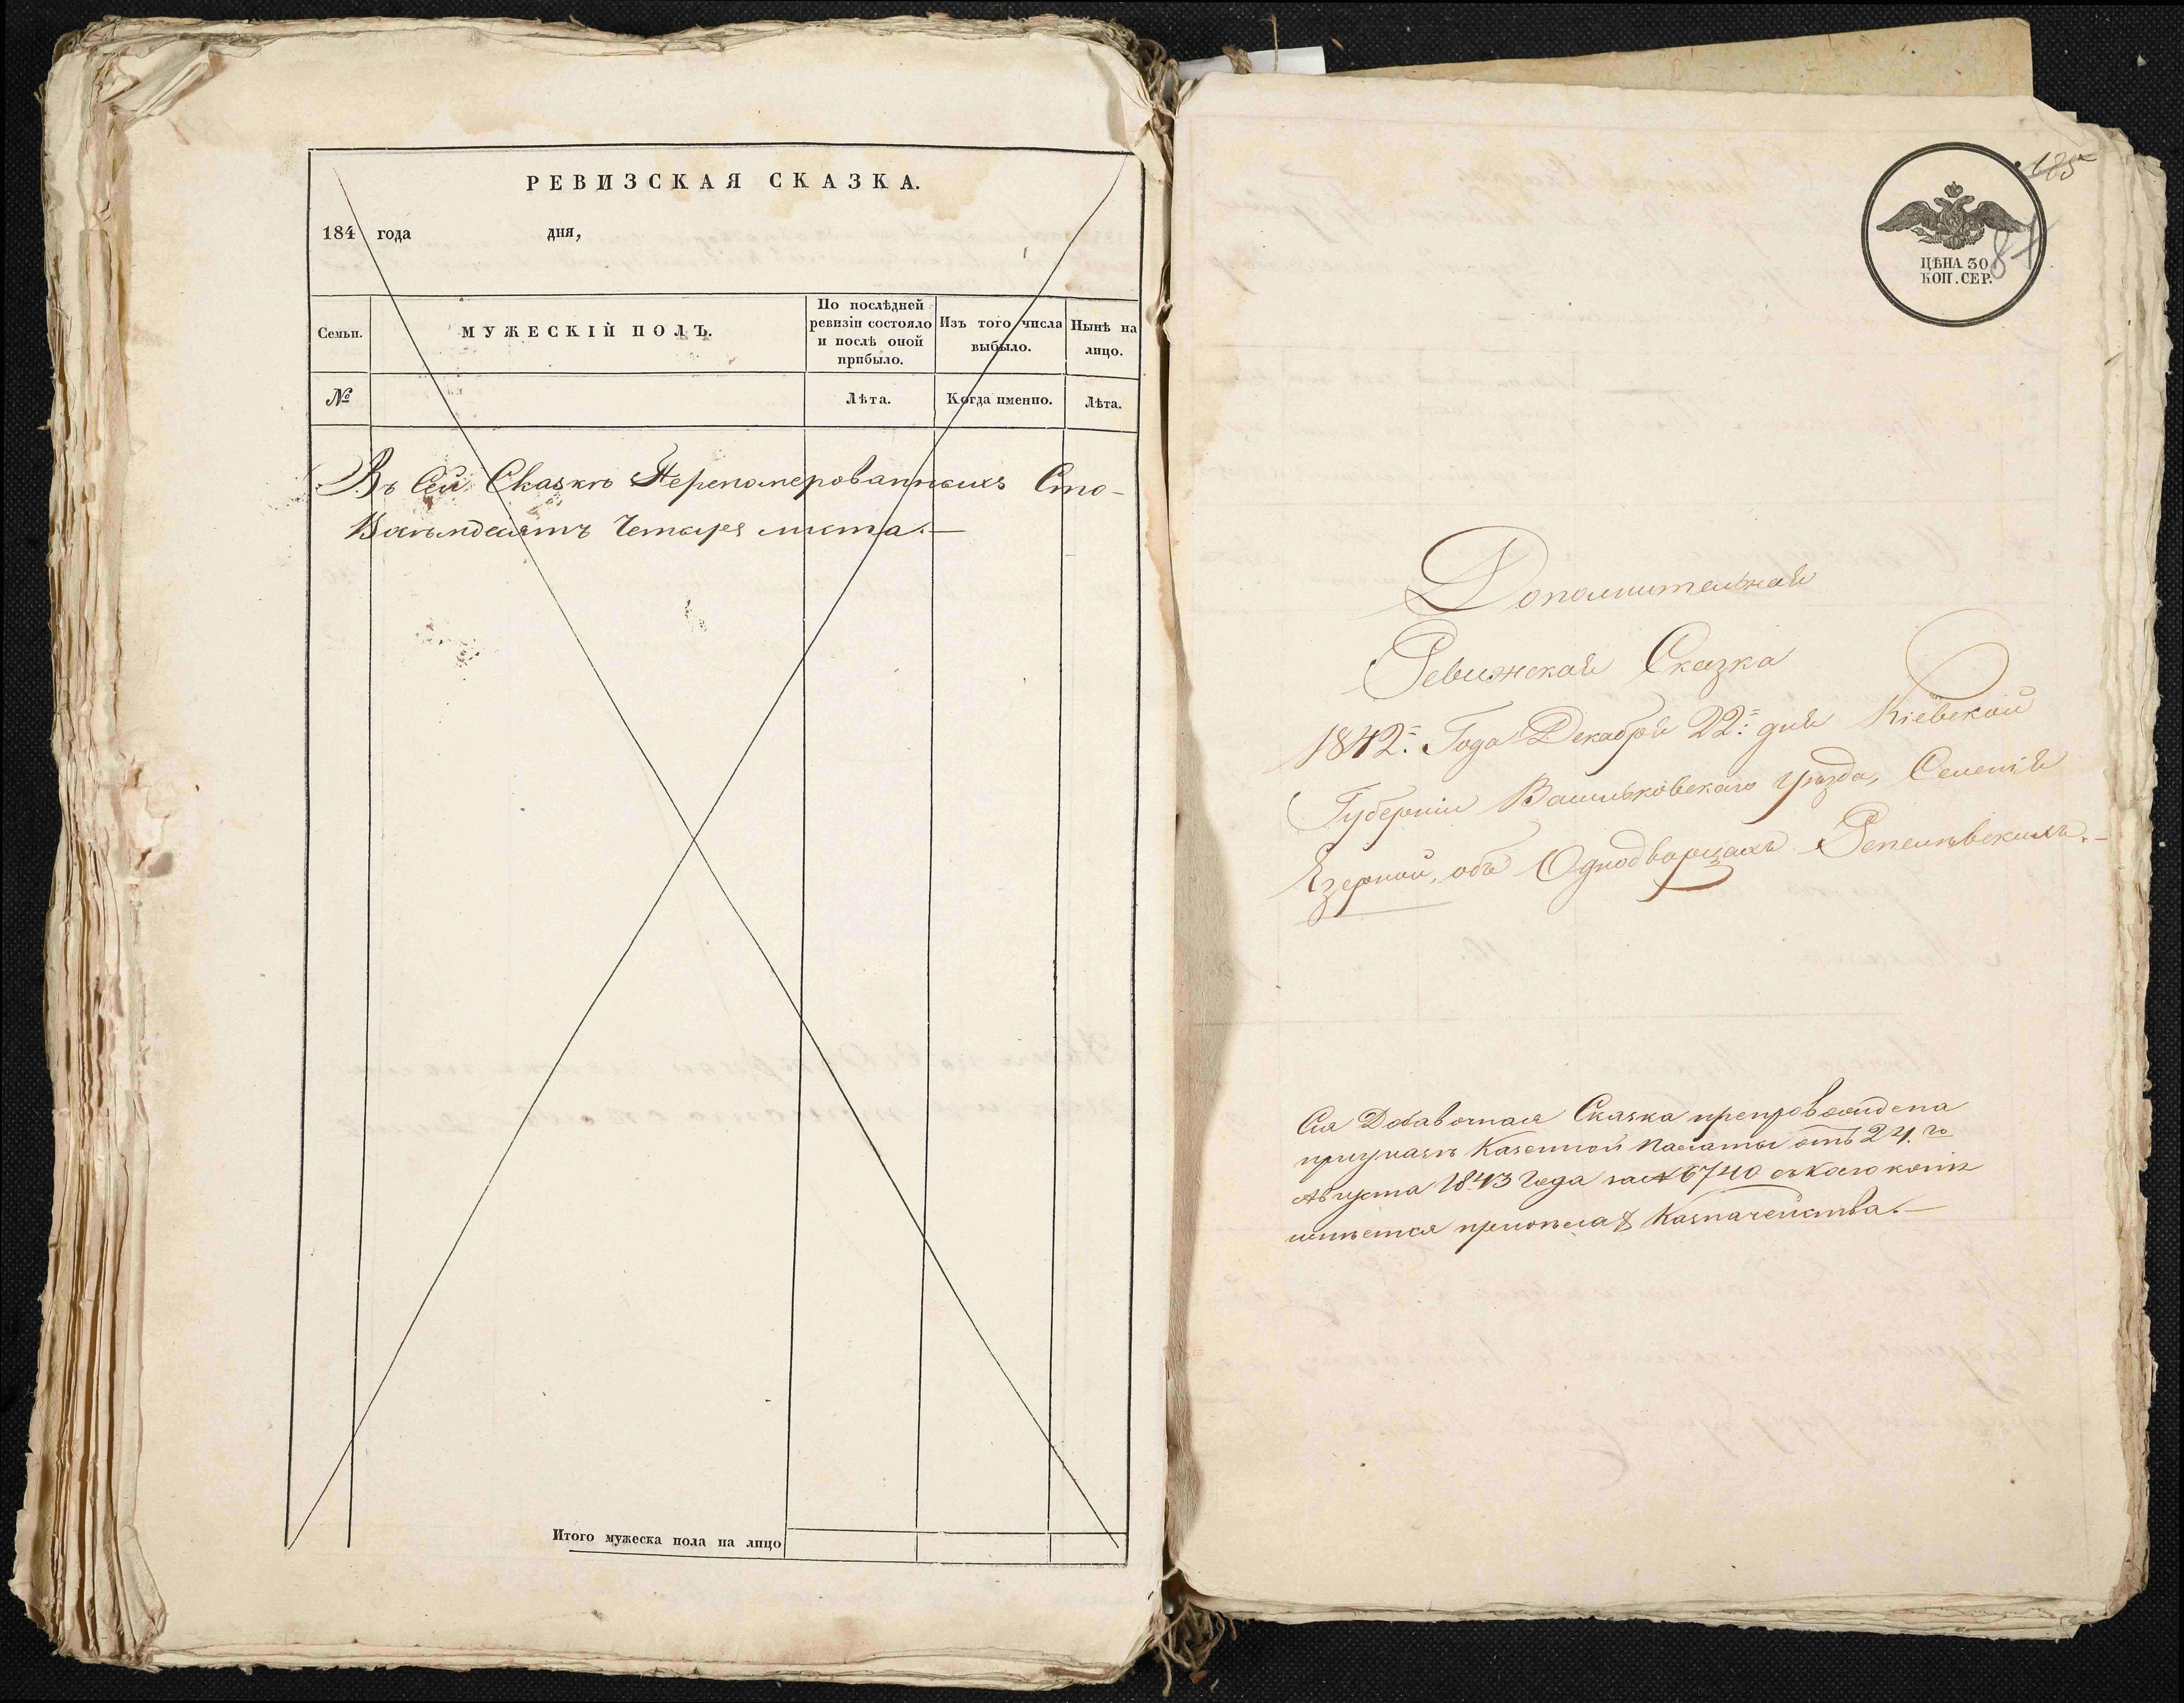 РЕВИЗСКАЯ СКАЗКА.
184 года дня,
Семьи.
МУЖЕСКІЙ ПОЛЪ.
По послѣдней
ревизіи состояло
и послѣ оной
прибыло.
Изъ того числа
выбыло.
Нынѣ на
лицо.
№
Лѣта.
Когда именно.
Лѣта.
Въ Сей Сказкѣ Перенумерованныхъ Сто-
Восѣмдесятъ Четыре листа.—
Итого мужеска пола на лицо
185
ЦѢНА 30
КОП. СЕР.
87
Дополнительная
Ревижская Сказка
1842: Года Декабря 22: дня Кіевской
Губерніи Васильковскаго уѣзда, Селенія
Езерной, объ Однодворцахъ Репелѣвскихъ.—
Сія Добавочная Сказка препровождена
при указѣ Казенной Палаты отъ 24.го
Августа 1843 года за № 6740 съ коего копія
имѣется при дѣлах Казначейства.—